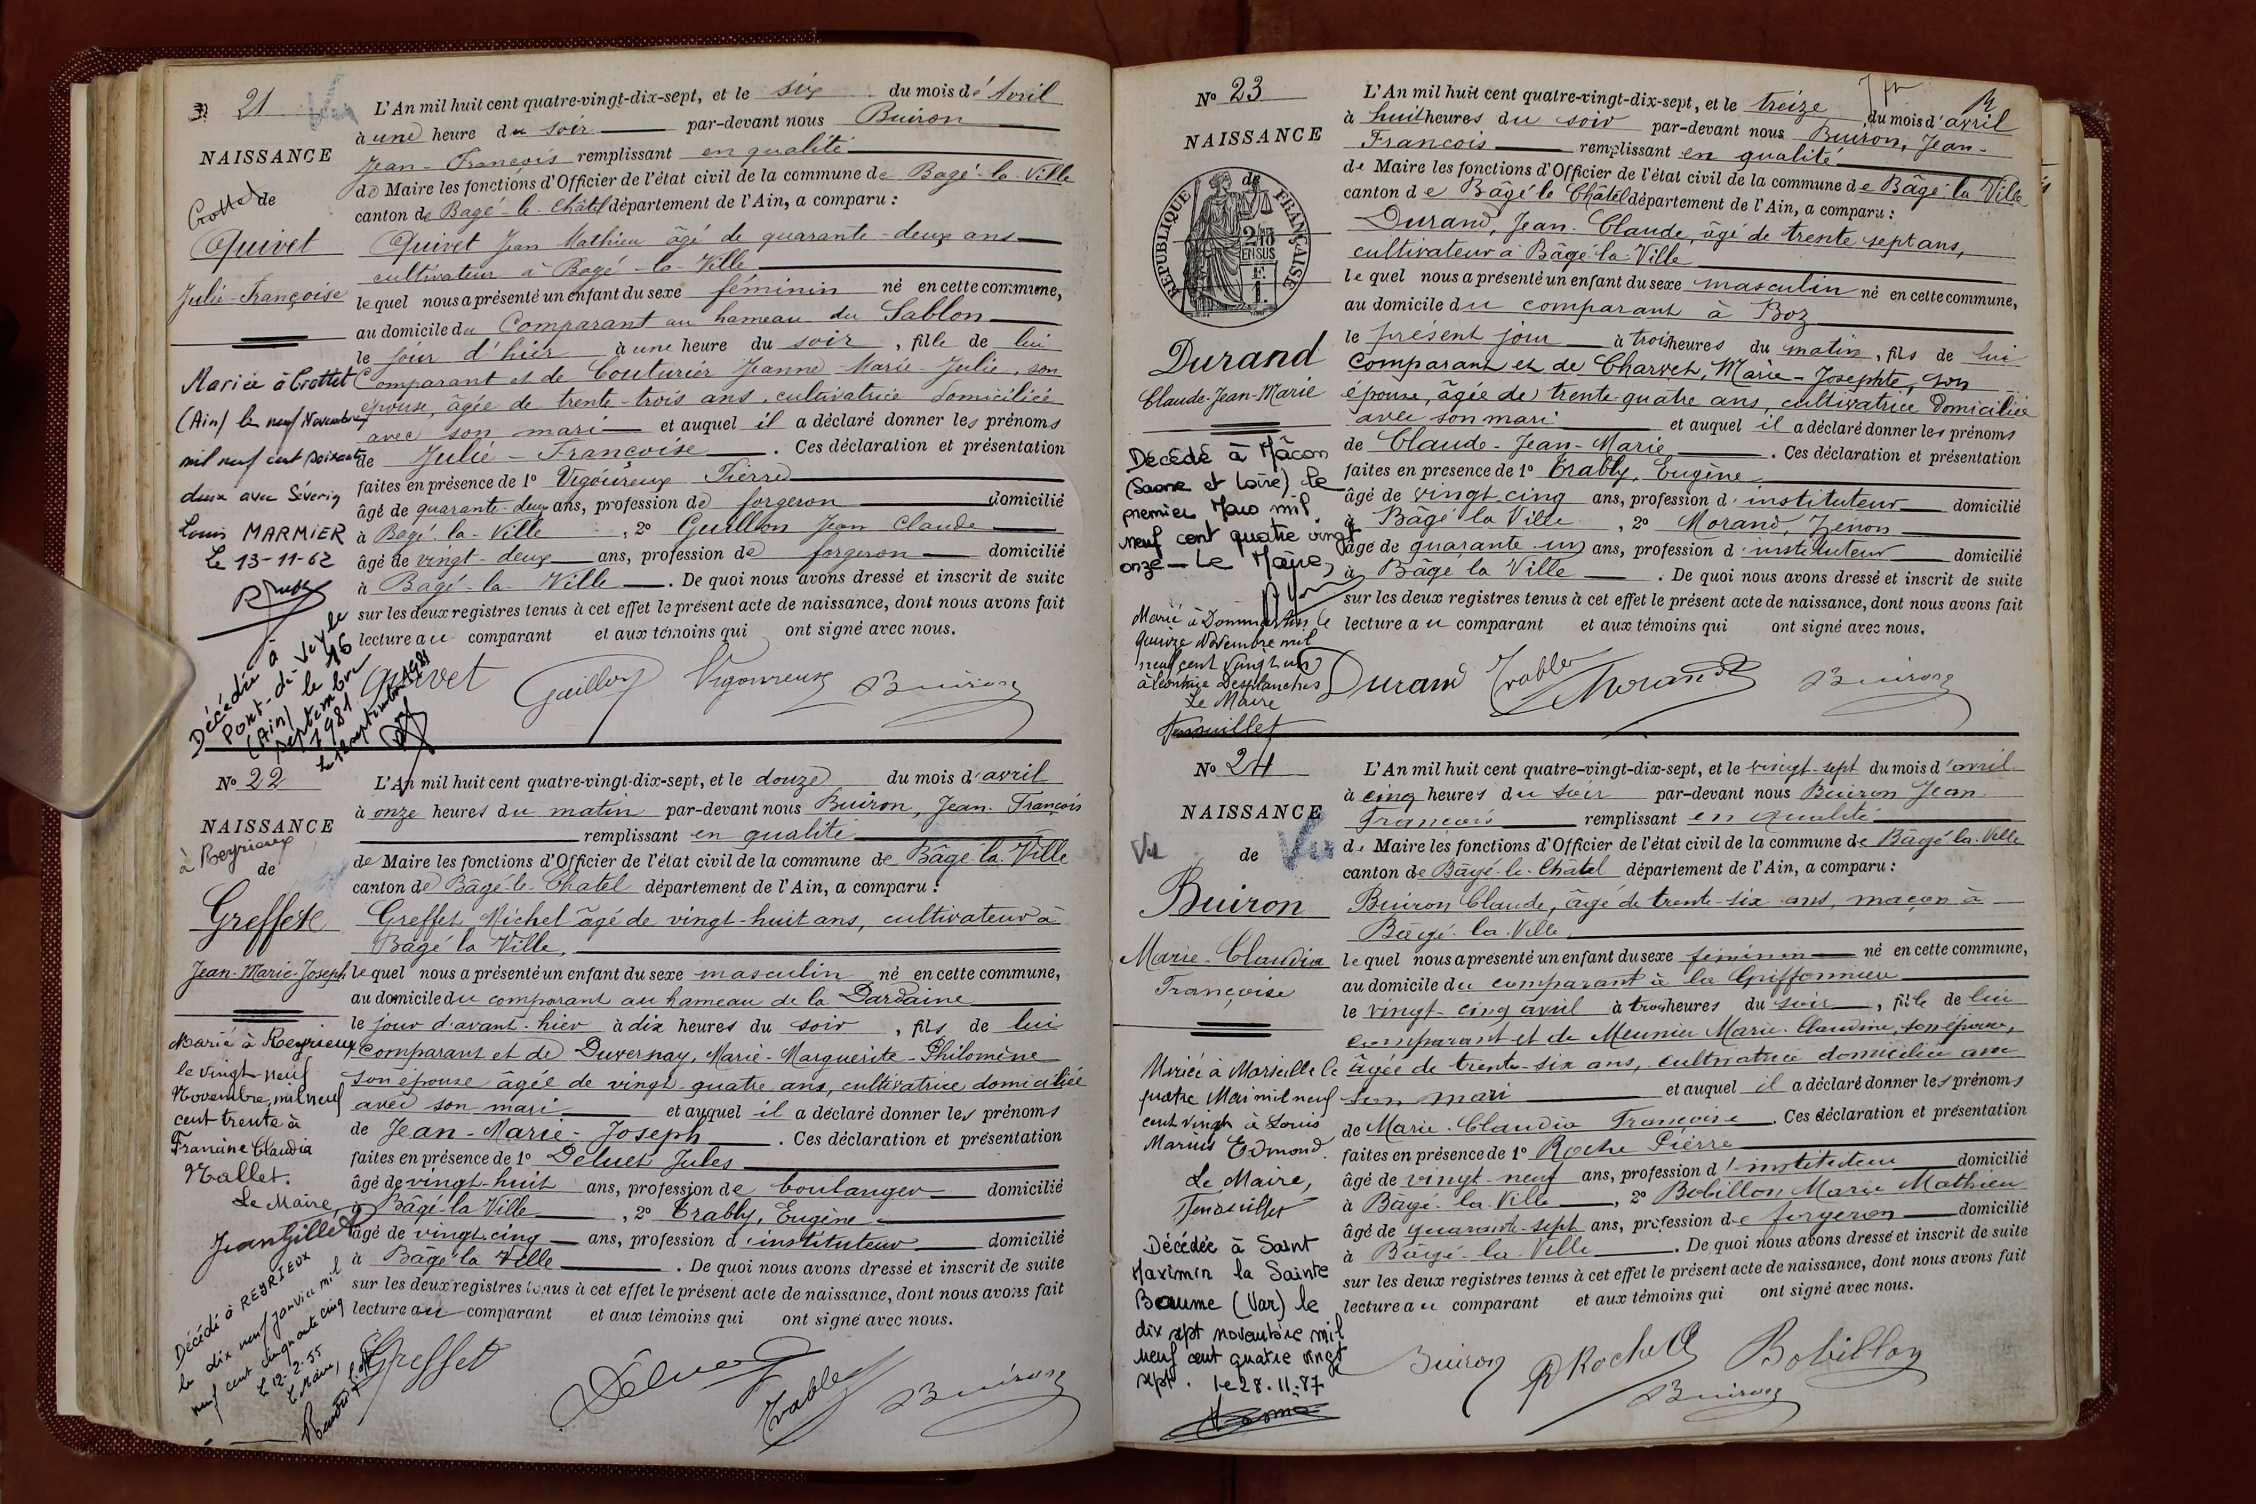 N° 21
Vu
NAISSANCE
de
Crottet
Quivet
Julie-Françoise
Mariée à Crottet
(Ain) le neuf Novembre
mil neuf cent soixante
deux avec Séverin
Louis MARMIER
Le 13-11-62
Décédée à
Pont-de-Veyle
(Ain) le 16
septembre
1981
L'An mil huit cent quatre-vingt-dix-sept, et le six du mois d'Avril
à une heure du soir par-devant nous Buiron
Jean-François remplissant en qualité
de Maire les fonctions d'Officier de l'état civil de la commune de Bagé-la-Ville
canton de Bagé-le-Châtel département de l'Ain, a comparu :
Quivet Jean Mathieu âgé de quarante-deux ans
cultivateur à Bagé-la-Ville
lequel nous a présenté un enfant du sexe féminin né en cette commune,
au domicile du Comparant au hameau du Sablon
le jour d'hier à une heure du soir, fille de lui
Comparant et de Couturier Jeanne-Marie-Julie, son
épouse, âgée de trente-trois ans, cultivatrice domiciliée
avec son mari et auquel il a déclaré donner les prénoms
de Julie-Françoise. Ces déclaration et présentation
faites en présence de 1° Vigoureux Pierre
âgé de quarante-deux ans, profession de forgeron domicilié
à Bagé-la-Ville, 2° Guillon Jean Claude
âgé de vingt-deux ans, profession de forgeron domicilié
à Bagé-la-Ville. De quoi nous avons dressé et inscrit de suite
sur les deux registres tenus à cet effet le présent acte de naissance, dont nous avons fait
lecture au comparant et aux témoins qui ont signé avec nous.
Quivet Guillon Vigoureux Buiron
N° 22
NAISSANCE
à Reyrieux
de
Greffet
Jean-Marie-Joseph
Marié à Reyrieux
le vingt-neuf
Novembre, mil neuf
cent trente à
Francine Claudia
Nallet.
Le Maire,
Jean Gillet
Décédé à REYRIEUX
le dix neuf janvier mil
neuf cent cinquante cinq
le 12-2-55
Le Maire,
L'An mil huit cent quatre-vingt-dix-sept, et le douze du mois d'avril
à onze heures du matin par-devant nous Buiron, Jean-François
remplissant en qualité
de Maire les fonctions d'Officier de l'état civil de la commune de Bâgé-la-Ville
canton de Bâgé-le-Chatel département de l'Ain, a comparu :
Greffet, Michel âgé de vingt-huit ans, cultivateur à
Bagé la Ville,
lequel nous a présenté un enfant du sexe masculin né en cette commune,
au domicile du comparant au hameau de la Dardaine
le jour d'avant-hier à dix heures du soir, fils de lui
comparant et de Duvernay, Marie-Marguerite-Philomène
son épouse âgée de vingt-quatre ans, cultivatrice domiciliée
avec son mari et auquel il a déclaré donner les prénoms
de Jean-Marie-Joseph. Ces déclaration et présentation
faites en présence de 1° Deluet Jules
âgé de vingt-huit ans, profession de boulanger domicilié
à Bâgé-la-Ville, 2° Trably, Eugène
âgé de vingt-cinq ans, profession d'instituteur domicilié
à Bâgé-la-Ville. De quoi nous avons dressé et inscrit de suite
sur les deux registres tenus à cet effet le présent acte de naissance, dont nous avons fait
lecture au comparant et aux témoins qui ont signé avec nous.
Greffet Trably Buiron
N° 23
NAISSANCE
de
RÉPUBLIQUE FRANÇAISE
2/10 EN SUS
F. 1.
Durand
Claude-Jean-Marie
Décédé à Mâcon
(Saone et Loire) le
premier Mars mil
neuf cent quatre vingt
onze - Le Maire,
Marié à Dommartin le
quinze Novembre mil
neuf cent vingt un
à Léontine Desplanches
Le Maire
L'An mil huit cent quatre-vingt-dix-sept, et le treize du mois d'avril
à huit heures du soir par-devant nous Buiron, Jean-
François remplissant en qualité
de Maire les fonctions d'Officier de l'état civil de la commune de Bâgé-la-Ville
canton de Bâgé le Châtel département de l'Ain, a comparu :
Durand, Jean-Claude, âgé de trente sept ans,
cultivateur à Bâgé-la-Ville
lequel nous a présenté un enfant du sexe masculin né en cette commune,
au domicile du comparant à Boz
le présent jour à trois heures du matin, fils de lui
comparant et de Charvet, Marie-Josephte, son
épouse, âgée de trente-quatre ans, cultivatrice domiciliée
avec son mari et auquel il a déclaré donner les prénoms
de Claude-Jean-Marie. Ces déclaration et présentation
faites en présence de 1° Trably, Eugène
âgé de vingt-cinq ans, profession d'instituteur domicilié
à Bâgé la Ville, 2° Morand, Zénon
âgé de quarante-un ans, profession d'instituteur domicilié
à Bâgé la Ville. De quoi nous avons dressé et inscrit de suite
sur les deux registres tenus à cet effet le présent acte de naissance, dont nous avons fait
lecture au comparant et aux témoins qui ont signé avec nous.
Durand Trably Morand Buiron
N° 24
NAISSANCE
Vu de Vu
Buiron
Marie-Claudia
Françoise
Mariée à Marseille le
quatre Mai mil neuf
cent vingt à Louis
Marius Edmond.
Le Maire,
Décédée à Saint
Maximin la Sainte
Baume (Var) le
dix sept novembre mil
neuf cent quatre vingt
sept. le 28.11.87
L'An mil huit cent quatre-vingt-dix-sept, et le vingt-sept du mois d'avril
à cinq heures du soir par-devant nous Buiron Jean
François remplissant en qualité
de Maire les fonctions d'Officier de l'état civil de la commune de Bâgé-la-Ville
canton de Bâgé-le-Châtel département de l'Ain, a comparu :
Buiron Claude, âgé de trente-six ans, maçon à
Bâgé-la-Ville,
lequel nous a présenté un enfant du sexe féminin né en cette commune,
au domicile du comparant à la Griffonnière
le vingt-cinq avril à trois heures du soir, fille de lui
comparant et de Meunier Marie-Claudine, son épouse,
âgée de trente-six ans, cultivatrice domiciliée avec
son mari et auquel il a déclaré donner les prénoms
de Marie-Claudia Françoise. Ces déclaration et présentation
faites en présence de 1° Roche Pierre
âgé de vingt-neuf ans, profession d'instituteur domicilié
à Bâgé-la-Ville, 2° Bobillon Marie Mathieu
âgé de quarante-sept ans, profession de forgeron domicilié
à Bâgé-la-Ville. De quoi nous avons dressé et inscrit de suite
sur les deux registres tenus à cet effet le présent acte de naissance, dont nous avons fait
lecture au comparant et aux témoins qui ont signé avec nous.
Buiron P Roche Bobillon
Buiron